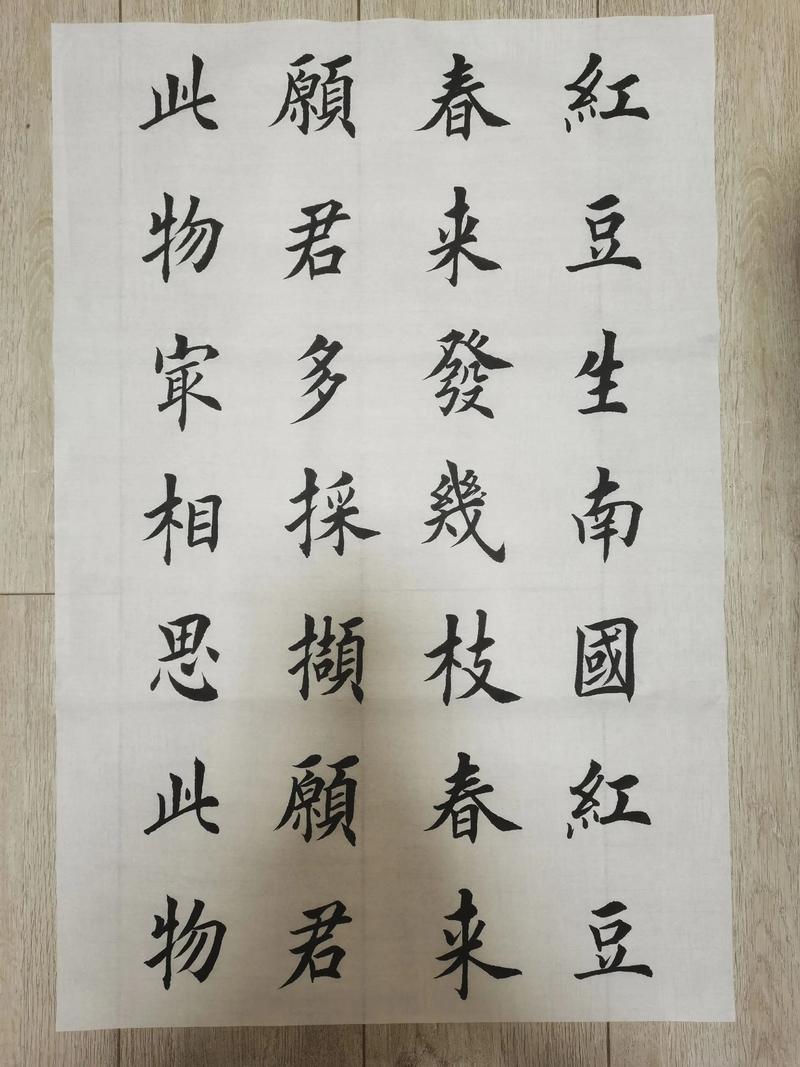 紅豆生南國紅豆
春来發幾枝春来
願君多採擷願君
此物㝡相思此物